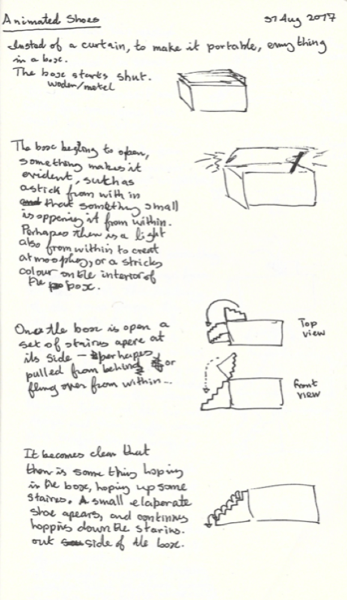 Animated Shoes
31 Aug 2017
Insted of a curtain, to make it portable, everything
in a box.
The box starts shut.
wooden/metel
The boxe begins to open,
something makes it
evident, sutch as
a stick from with in
that something small
is oppening it from within.
Perhapes then is a light
also from within to creat
atmosphey, or a stricke
colour on the interior of
the box.
Once the box is open a
set of staires apere at
its side - perhapes
pulled from behind or
fling over from within...
Top
view
front
view
It becomes clear that
then is some thing hoping
in the box, hoping up some
staires. A small elaperate
shoe apears, and continus
hopping down the stairs.
out side of the box.